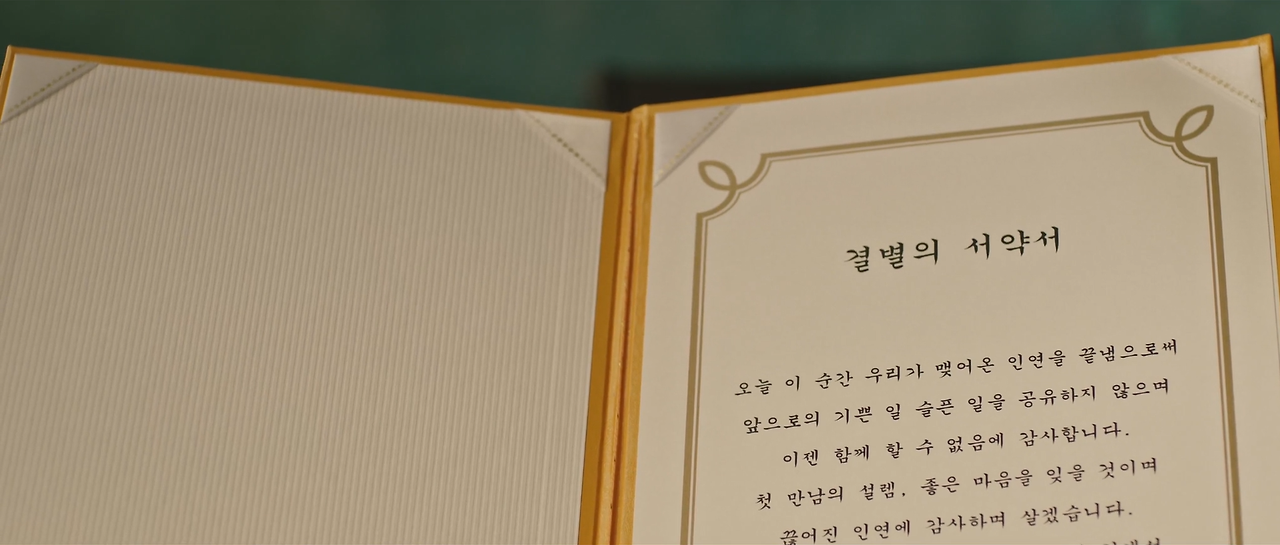 결별의 서약서
오늘 이 순간 우리가 맺어온 인연을 끝냄으로써
앞으로의 기쁜 일 슬픈 일을 공유하지 않으며
이젠 함께 할 수 없음에 감사합니다.
첫 만남의 설렘, 좋은 마음을 잊을 것이며
끊어진 인연에 감사하며 살겠습니다.